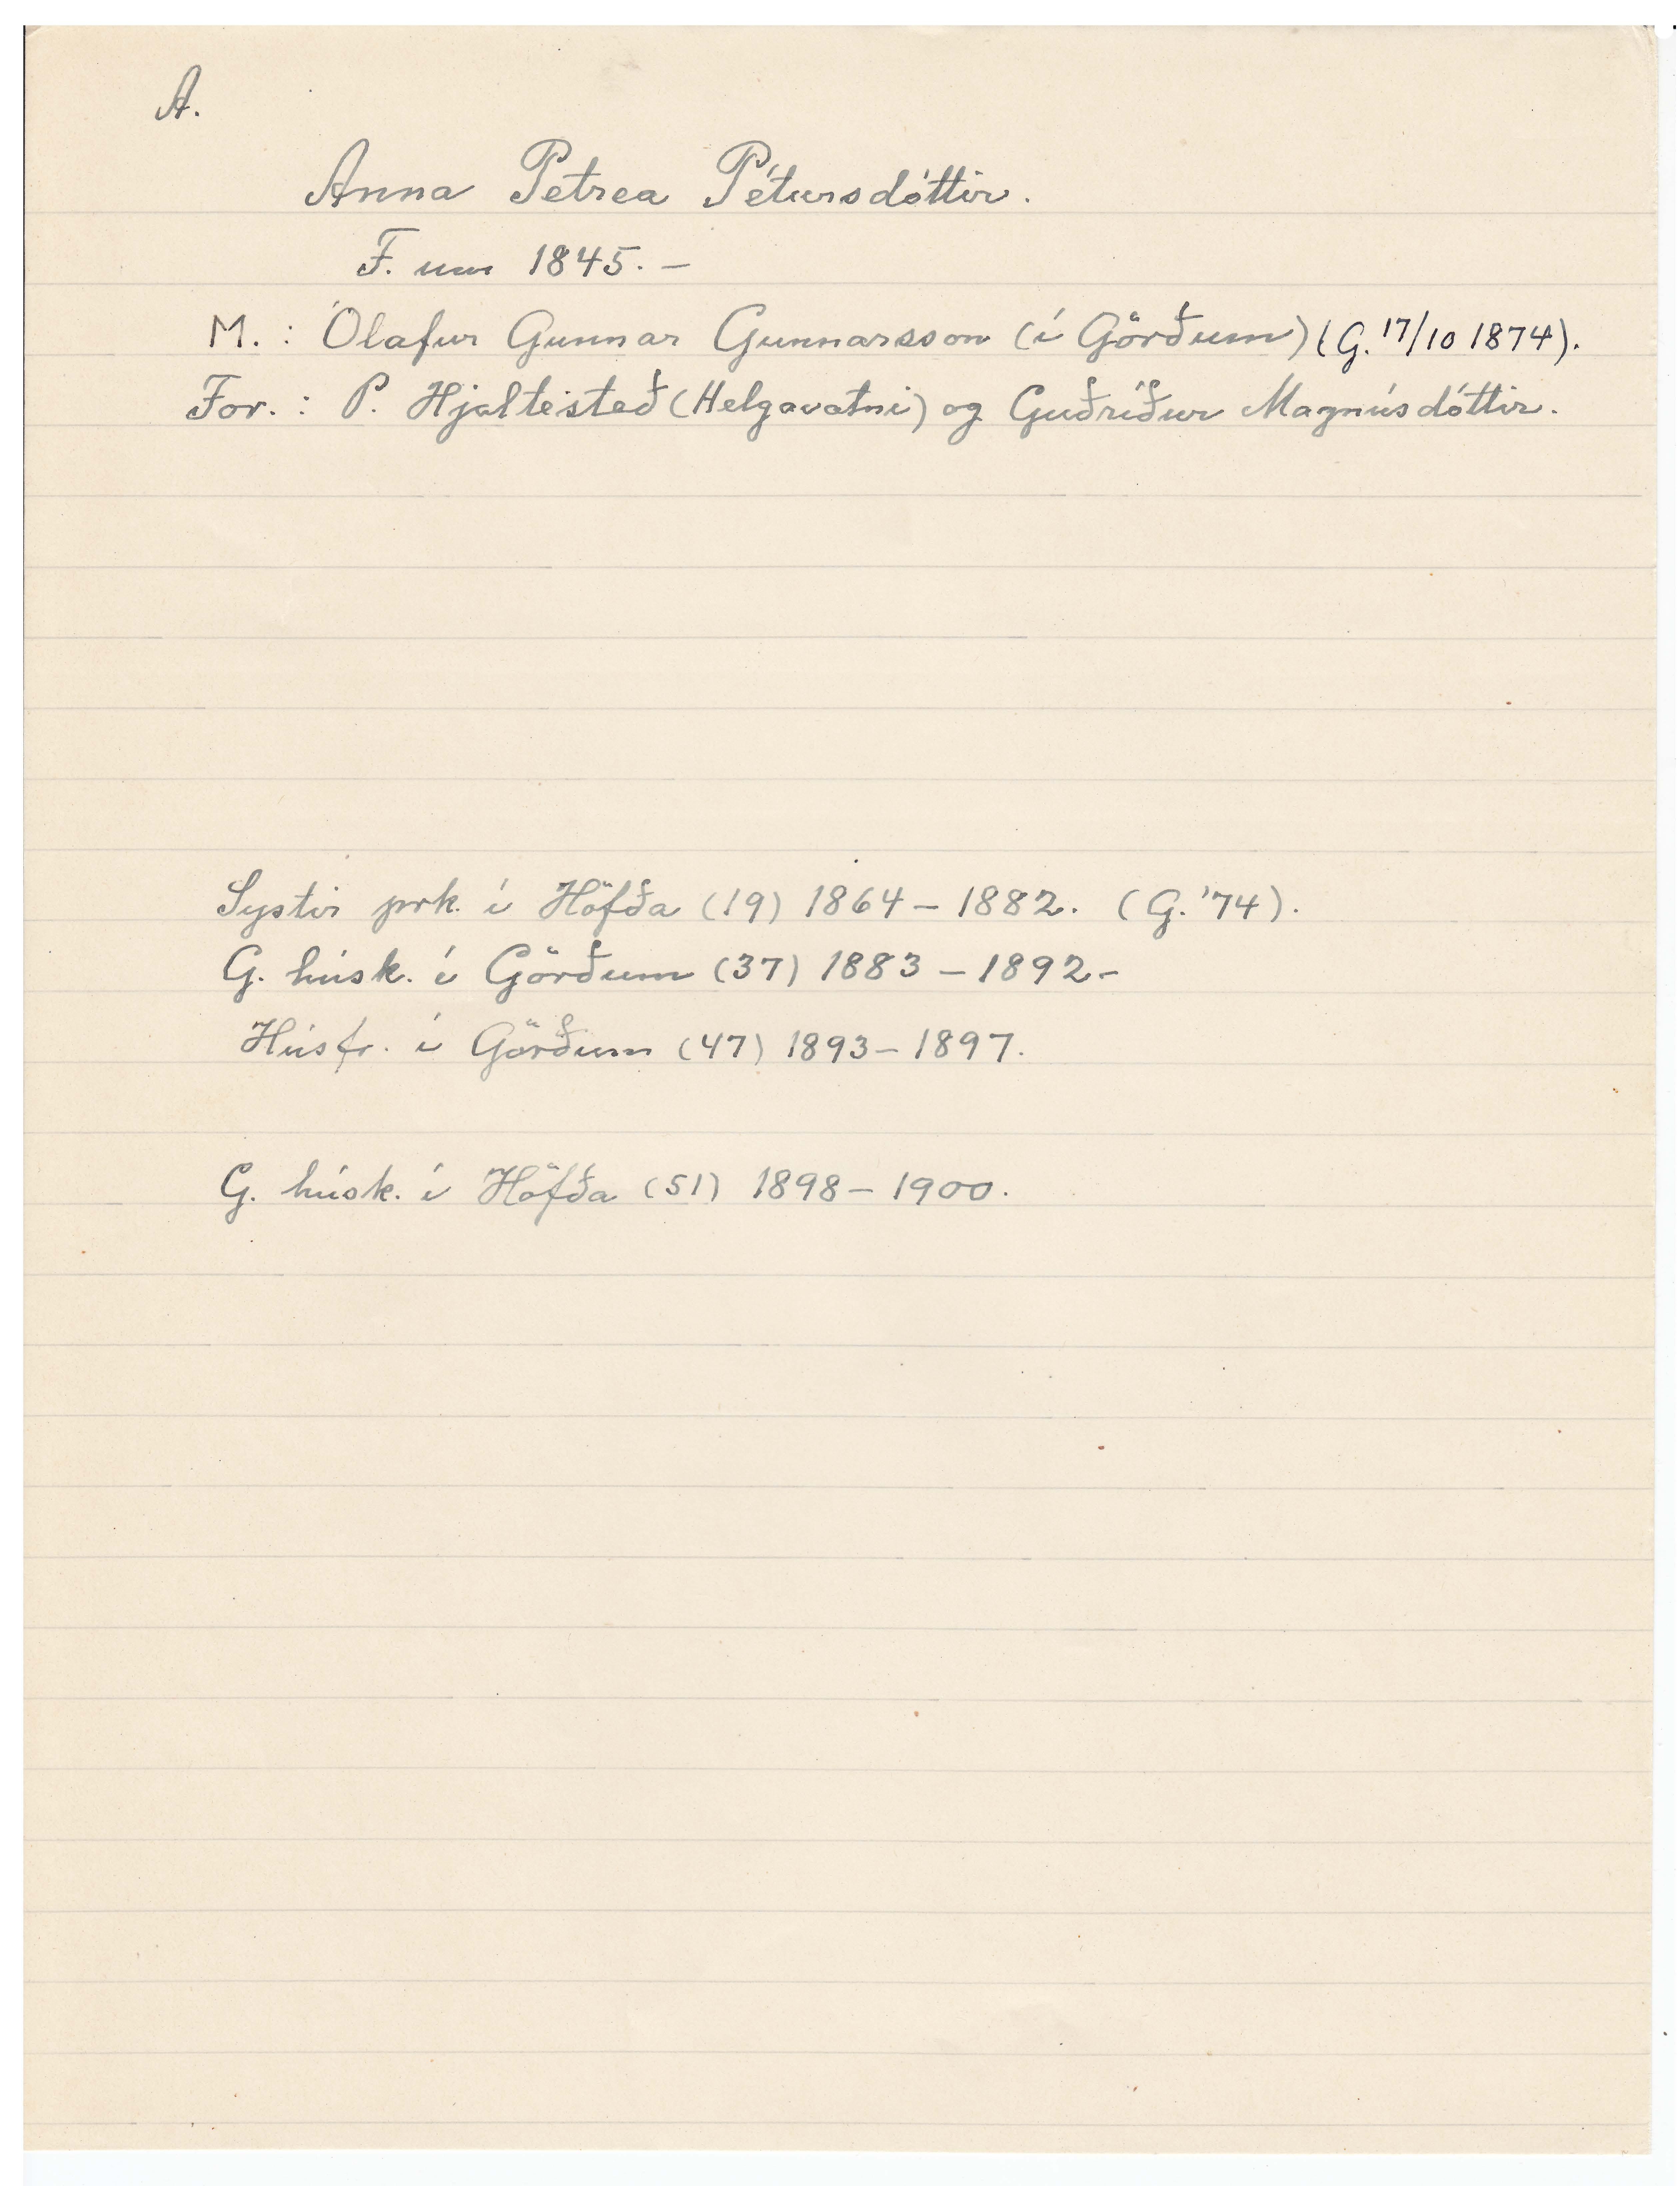 A.
Anna Petrea Pétursdóttir.
F. um 1845. –
M. : Ólafur Gunnar Gunnarsson (í Görðum) (G. 17/10 1874).
For. : P. Hjaltesteð (Helgavatni) og Guðríður Magnúsdóttir.
Systir prk. í Höfða (19) 1864 – 1882. (G. '74).
G. húsk. í Görðum (37) 1883 – 1892 –
Húsfr. í Görðum (47) 1893 – 1897.
G. húsk. í Höfða (51) 1898 – 1900.